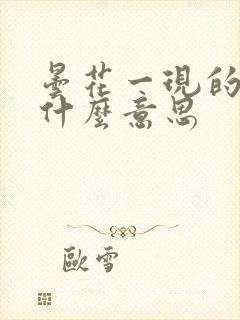 曇花一現的
什麼意思
歐雪